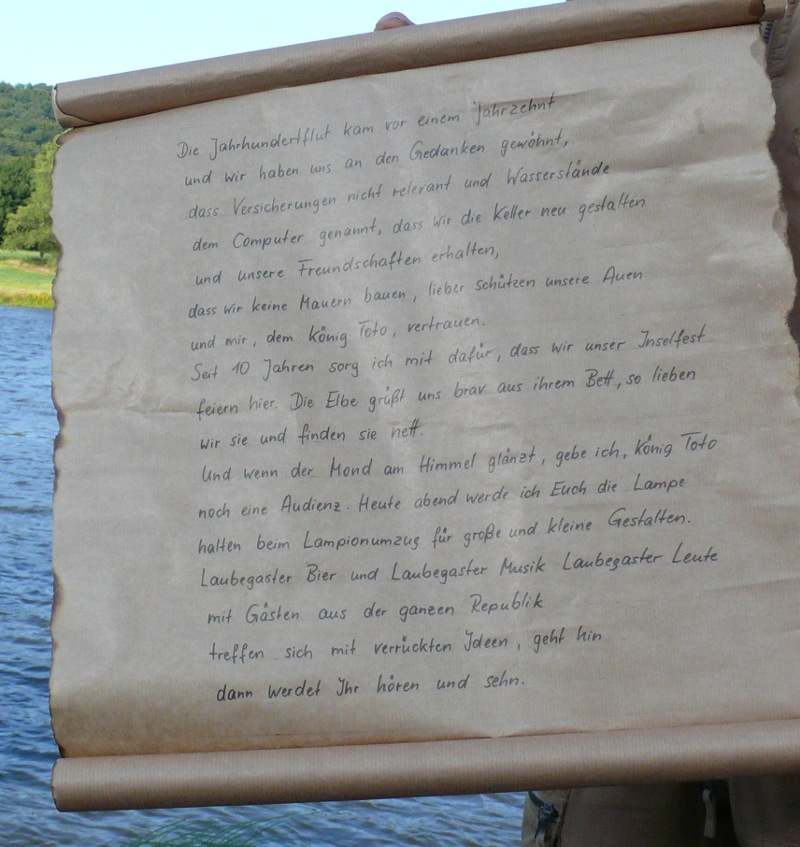 Die Jahrhundertflut kam vor einem Jahrzehnt
und wir haben uns an den Gedanken gewöhnt,
dass Versicherungen nicht relevant und Wasserstände
dem Computer genannt, dass wir die Keller neu gestalten
und unsere Freundschaften erhalten,
dass wir keine Mauern bauen, lieber schützen unsere Auen
und mir, dem König Toto, vertrauen.
Seit 10 Jahren sorg ich mit dafür, dass wir unser Inselfest
feiern hier. Die Elbe grüßt uns brav aus ihrem Bett, so lieben
wir sie und finden sie nett.
Und wenn der Mond am Himmel glänzt, gebe ich, König Toto
noch eine Audienz. Heute abend werde ich Euch die Lampe
halten beim Lampionumzug für große und kleine Gestalten.
Laubegaster Bier und Laubegaster Musik Laubegaster Leute
mit Gästen aus der ganzen Republik
treffen sich mit verrückten Ideen, geht hin
dann werdet Ihr hören und sehn.